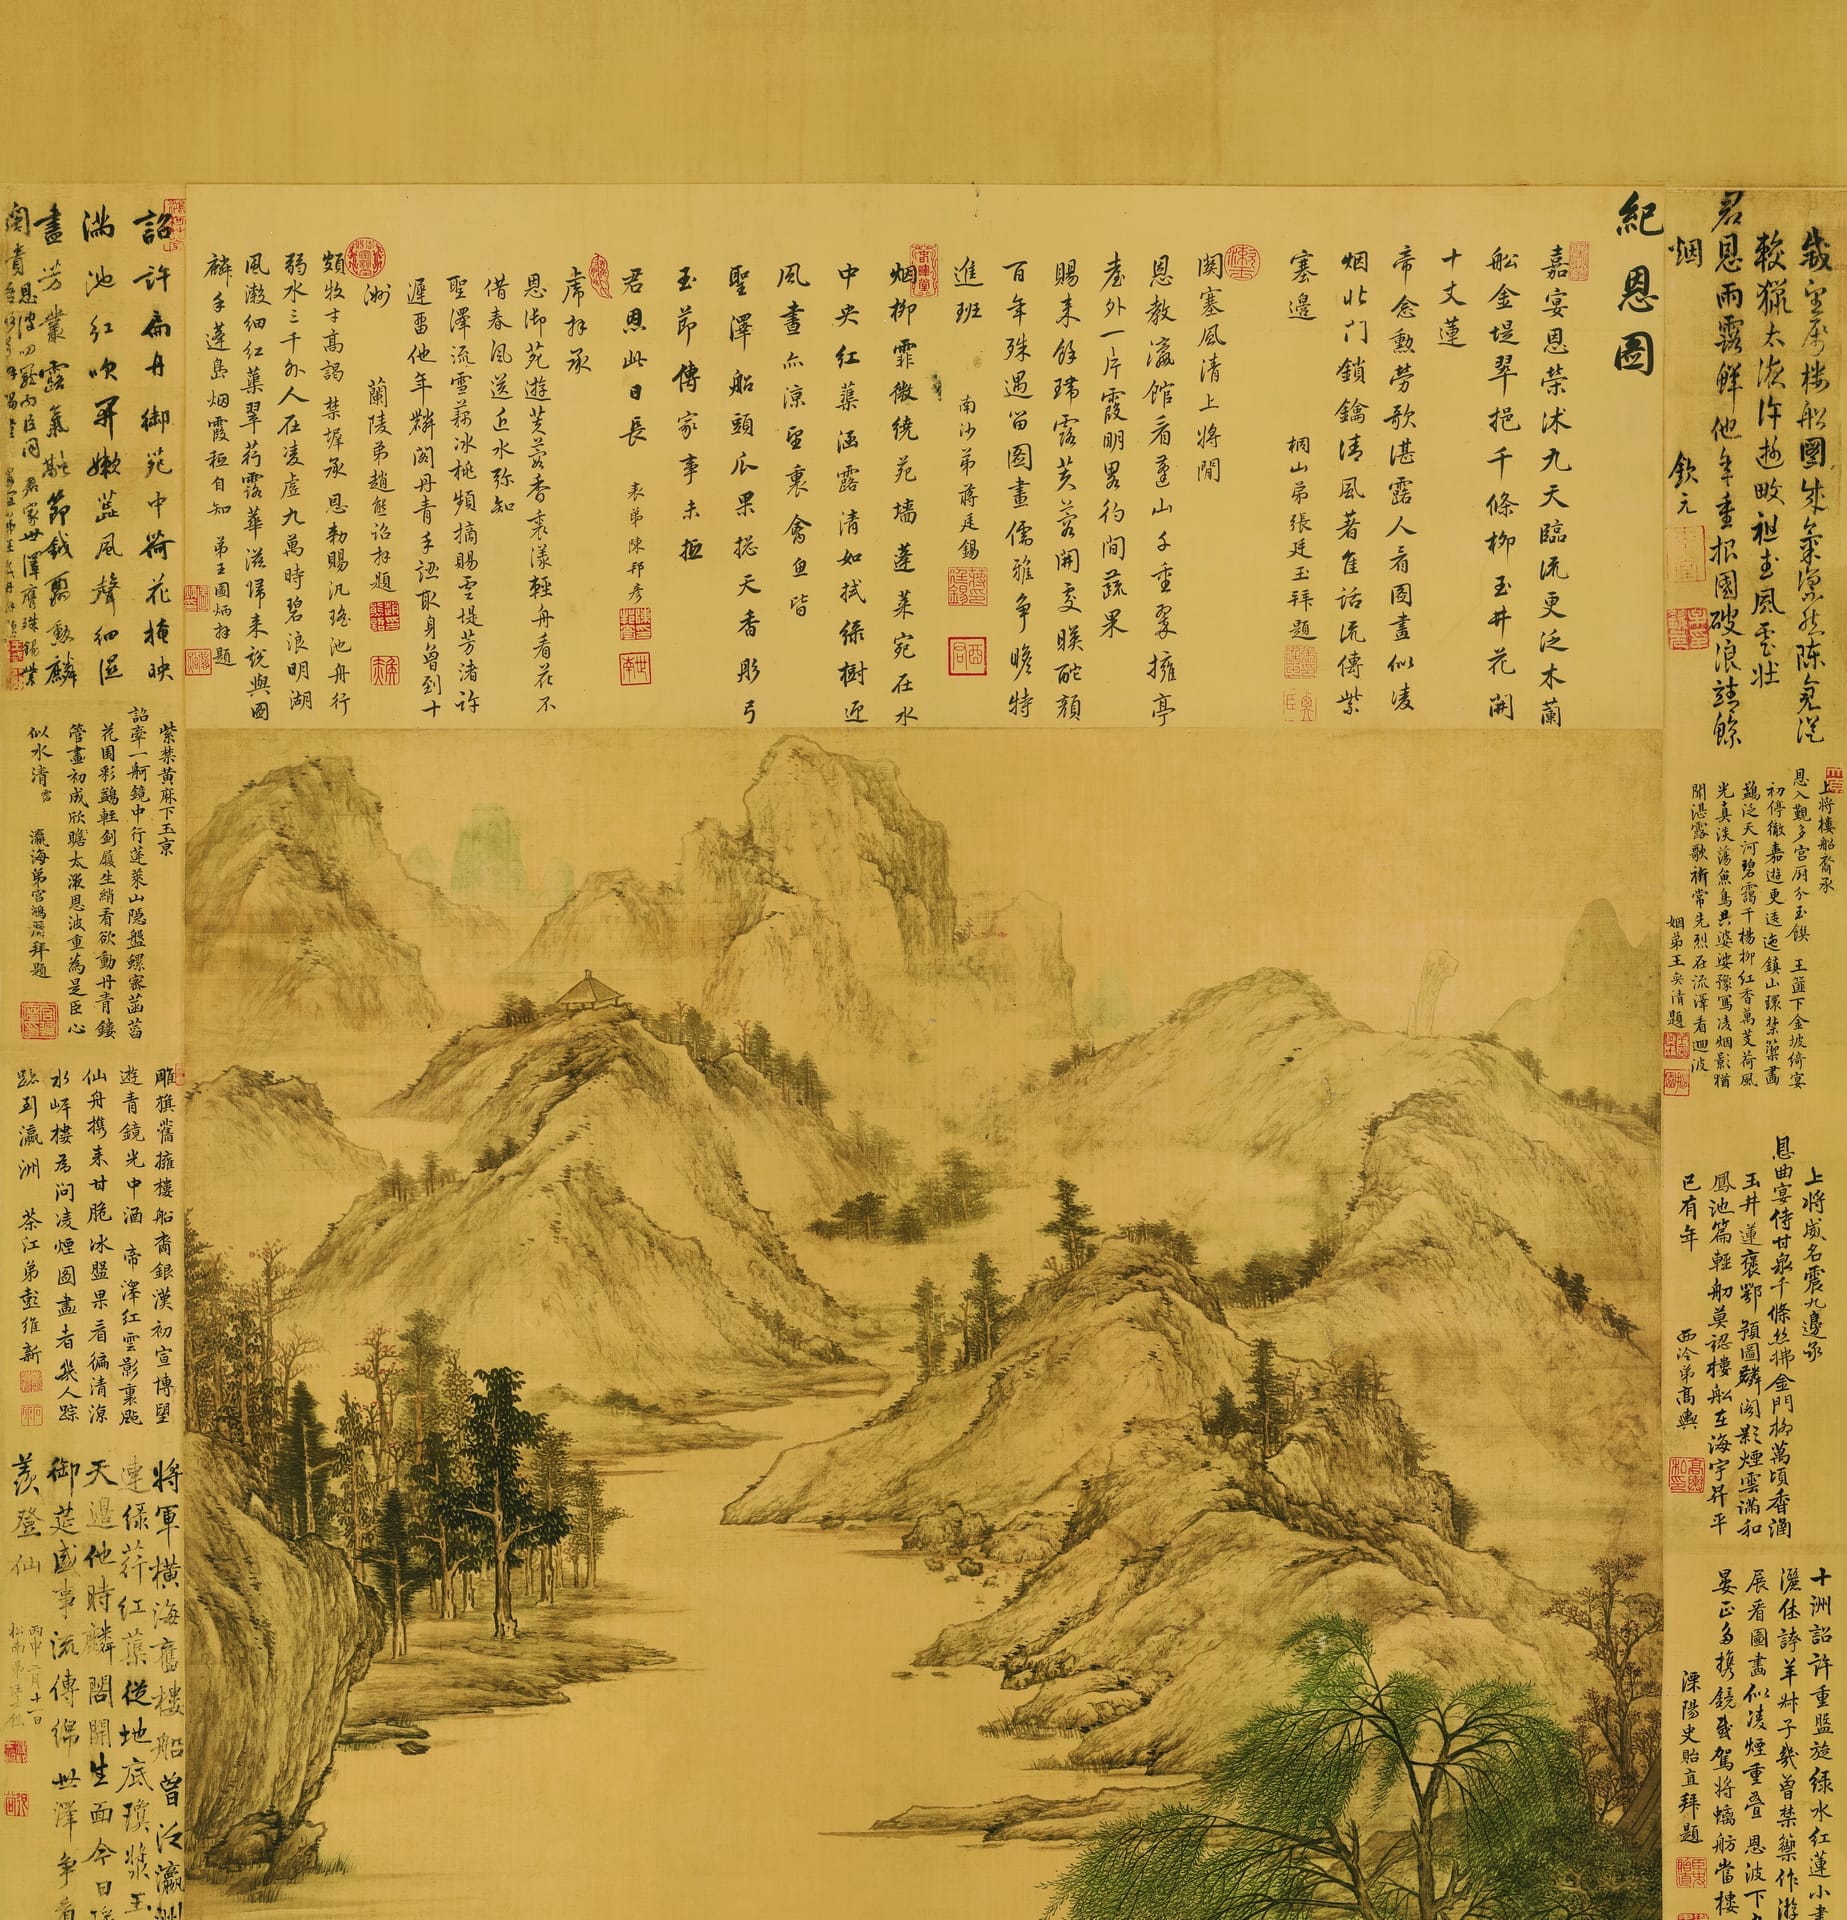 紀恩圖
嘉宴恩榮沐九天臨流更泛木蘭
船金堤翠挹千條柳玉井花開
十丈蓮
帝念勲勞歌湛露人看圖畫似凌
烟北门鎖鑰清風著隹話流傳紫
塞邊
桐山弟張廷玉拜題
関塞風清上將閒
恩教瀛館看蓬山千重翠擁亭
臺外一片霞明畧彴間蔬果
賜来餘瑞露芙蓉開處映酡顔
百年殊遇留圖畫儒雅争瞻特
進班
南沙弟蔣廷錫
烟柳霏微繞苑墙蓬莱宛在水
中央紅蕖涵露清如拭緑樹迎
風晝亦涼望裏禽魚皆
聖澤船頭瓜果挹天香彤弓
玉節傳家事未抵
君恩此日長
表弟陳邦彦
席拜承
恩御苑遊芙蓉香裏漾輕舟看花不
借春風送近水弥知
聖澤流雪藕冰桃頻摘賜雲堤芳渚許
遲留他年麟閣丹青手認取身曽到十
洲
蘭陵弟趙熊詔拜題
頗牧才高謁禁墀承恩勅賜汎瑤池舟行
弱水三千外人在凌虚九萬時碧浪明湖
風漱細紅蕖翠荇露華滋歸来說與圖
麟手蓬島烟霞秪自知
弟王圖炳拜題
君恩雨露鮮他年重招國破浪靖鯨
烟
欽元
上將樓船裔承
恩入覲多宫厨分玉饌
王簋下金坡綺宴
初停徹嘉遊更逶迤鎮山環禁籞畫
鷁泛天河碧靄千楊柳紅香萬芰荷風
光真淡蕩魚鳥共婆娑豫寫凌烟影猶
聞湛露歌旂常先烈在流澤看迴波
姻弟王奕清題
上將威名震九邊承
恩曲宴侍甘泉千條絲拂金門柳萬頃香涵
玉井蓮褒鄂預圖麟閣影煙雲滿和
鳳池篇輕舠莫認樓船在海宇昇平
已有年
西泠弟高輿
十洲詔許重盤旋緑水紅蓮小
灑佳誇羊舛子幾曽禁籞作游
展看圖畫似凌煙重疊恩波下
晏正多携鏡歌駕將螭舫當樓
溧陽史貽直拜題
詔許扁舟御苑中荷花掩映
滿池紅吹開嫩蕋風聲細浥
盡芳叢露氣融節鉞勇勲麟
紫禁黄麻下玉京
詔牽一舸鏡中行蓬萊山隠盤螺密菡萏
花圍彩鷁輕剑履生綃看欲動丹青鏤
管畫初成欣瞻太液恩波重為是臣心
似水清
瀛海弟宫鴻厯拜題
雕旗舊擁樓船裔銀漢初宣博望
遊青鏡光中涵帝澤紅雲影裏颺
仙舟携来甘脆冰盤果看徧清涼
水㟁樓為问凌煙图畫者幾人踪
跡到瀛洲
茶江弟彭維新
將軍横海舊樓船曽泛瀛洲
連緑荇紅蕖從地底瓊漿玉
天邉他時麟閣開生面今日
御筵盛事流傳綿世澤争看
羨登仙
丙申二月十一日